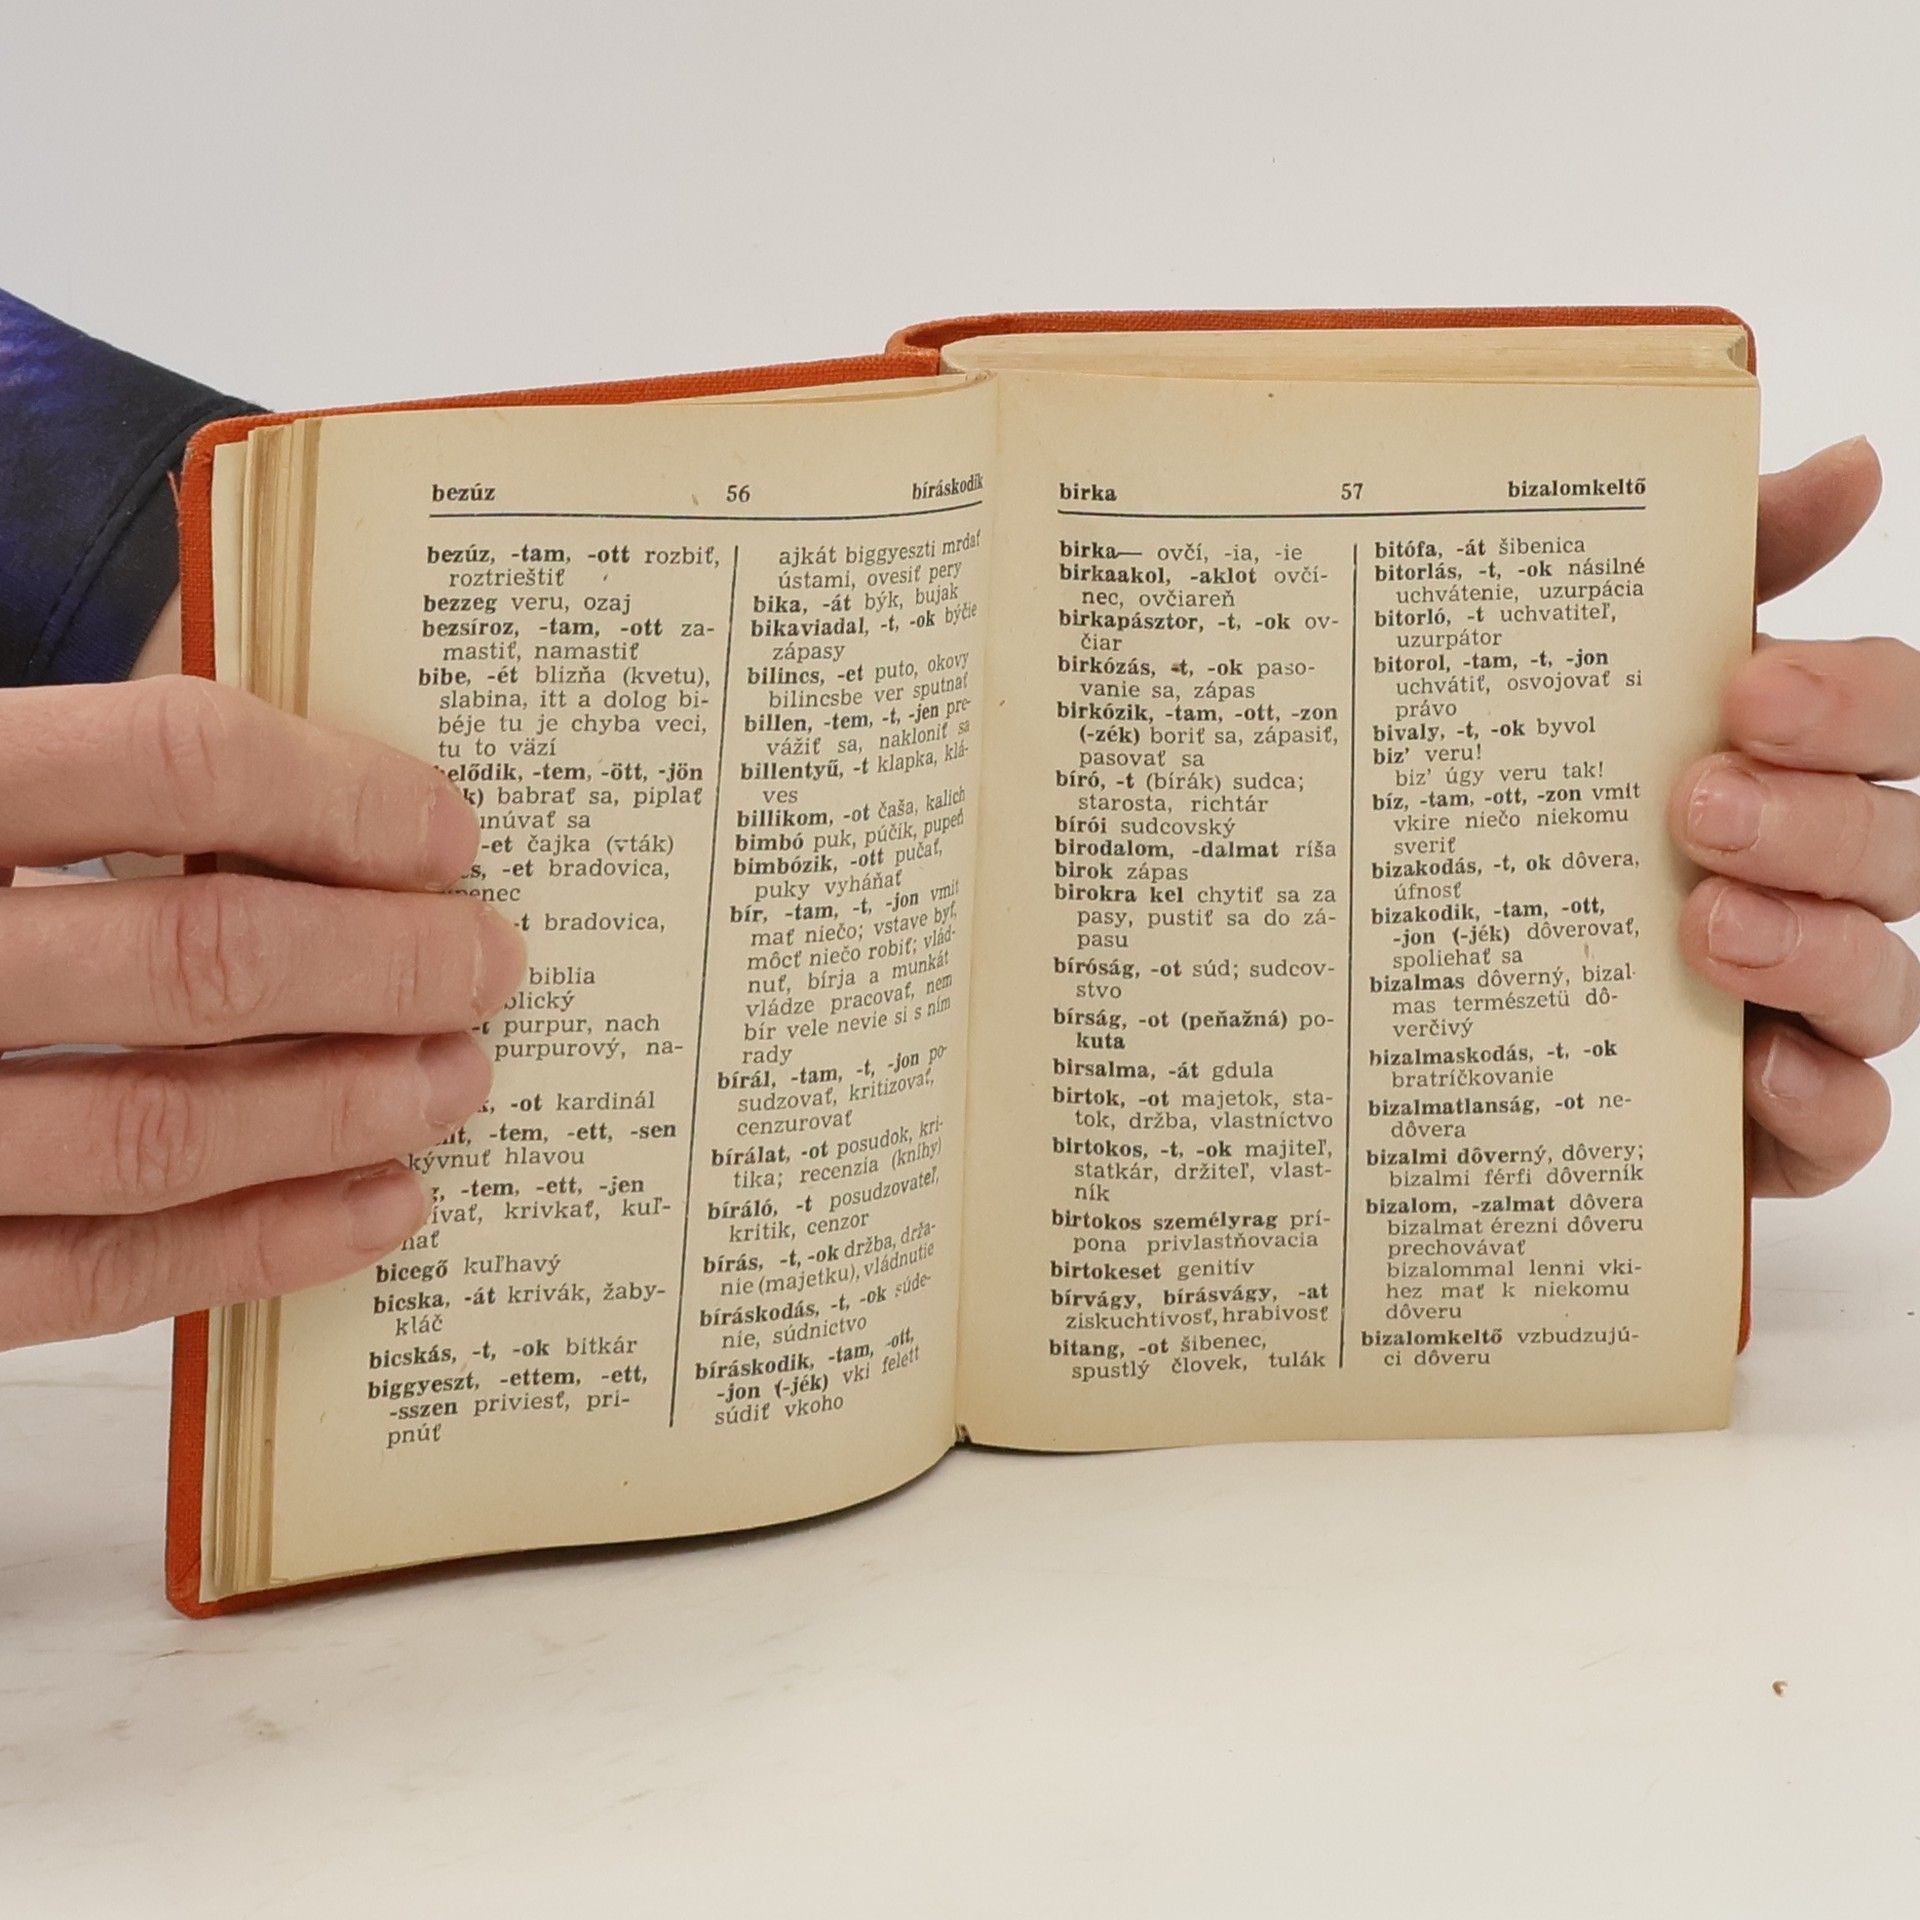 bezúz 56 bíráskodik
bezúz, -tam, -ott rozbiť,
roztrieštiť
bezzeg veru, ozaj
bezsíroz, -tam, -ott za-
mastiť, namastiť
bibe, -ét blizňa (kvetu),
slabina, itt a dolog bi-
béje tu je chyba veci,
tu to väzí
-tem, -ött, -jön
babrať sa, piplať
sa
-et čajka (vták)
-et bradovica,
-t bradovica,
biblia
-t purpur, nach
purpurový, na-
-ot kardinál
-tem, -ett, -sen
kývnuť hlavou
-tem, -ett, -jen
krivkať, kuľ-
hať
bicegő kuľhavý
bicska, -át krivák, žaby-
kláč
bicskás, -t, -ok bitkár
biggyeszt, -ettem, -ett,
-sszen priviesť, pri-
pnúť
ajkát biggyeszti mrdať
ústami, ovesiť pery
bika, -át býk, bujak
bikaviadal, -t, -ok býčie
zápasy
bilincs, -et puto, okovy
bilincsbe ver sputnať
billen, -tem, -t, -jen pre-
vážiť sa, nakloniť sa
billentyű, -t klapka, klá-
ves
billikom, -ot čaša, kalich
bimbó puk, púčik, pupeň
bimbózik, -ott pučať,
puky vyháňať
bír, -tam, -t, -jon vmiť
mať niečo; vstave byť,
môcť niečo robiť; vlád-
nuť, bírja a munkát
vládze pracovať, nem
bír vele nevie si s ním
rady
bírál, -tam, -t, -jon po-
sudzovať, kritizovať,
cenzurovať
bírálat, -ot posudok, kri-
tika; recenzia (knihy)
bíráló, -t posudzovateľ,
kritik, cenzor
bírás, -t, -ok držba, drža-
nie (majetku), vládnutie
bíráskodás, -t, -ok súde-
nie, súdnictvo
bíráskodik, -tam, -ott,
-jon (-jék) vki felett
súdiť vkoho
birka 57 bizalomkeltő
birka— ovčí, -ia, -ie
birkaakol, -aklot ovčí-
nec, ovčiareň
birkapásztor, -t, -ok ov-
čiar
birkózás, -t, -ok paso-
vanie sa, zápas
birkózik, -tam, -ott, -zon
(-zék) boriť sa, zápasiť,
pasovať sa
bíró, -t (bírák) sudca;
starosta, richtár
bírói sudcovský
birodalom, -dalmat ríša
birok zápas
birokra kel chytiť sa za
pasy, pustiť sa do zá-
pasu
bíróság, -ot súd; sudcov-
stvo
bírság, -ot (peňažná) po-
kuta
birsalma, -át gdula
birtok, -ot majetok, sta-
tok, držba, vlastníctvo
birtokos, -t, -ok majiteľ,
statkár, držiteľ, vlast-
ník
birtokos személyrag prí-
pona privlastňovacia
birtokeset genitív
bírvágy, bírásvágy, -at
ziskuchtivosť, hrabivosť
bitang, -ot šibenec,
spustlý človek, tulák
bitófa, -át šibenica
bitorlás, -t, -ok násilné
uchvátenie, uzurpácia
bitorló, -t uchvatiteľ,
uzurpátor
bitorol, -tam, -t, -jon
uchvátiť, osvojovať si
právo
bivaly, -t, -ok byvol
biz' veru!
biz' úgy veru tak!
bíz, -tam, -ott, -zon vmit
vkire niečo niekomu
sveriť
bizakodás, -t, ok dôvera,
úfnosť
bizakodik, -tam, -ott,
-jon (-jék) dôverovať,
spoliehať sa
bizalmas dôverný, bizal-
mas természetü dô-
verčivý
bizalmaskodás, -t, -ok
bratríčkovanie
bizalmatlanság, -ot ne-
dôvera
bizalmi dôverný, dôvery;
bizalmi férfi dôverník
bizalom, -zalmat dôvera
bizalmat érezni dôveru
prechovávať
bizalommal lenni vki-
hez mať k niekomu
dôveru
bizalomkeltő vzbudzujú-
ci dôveru